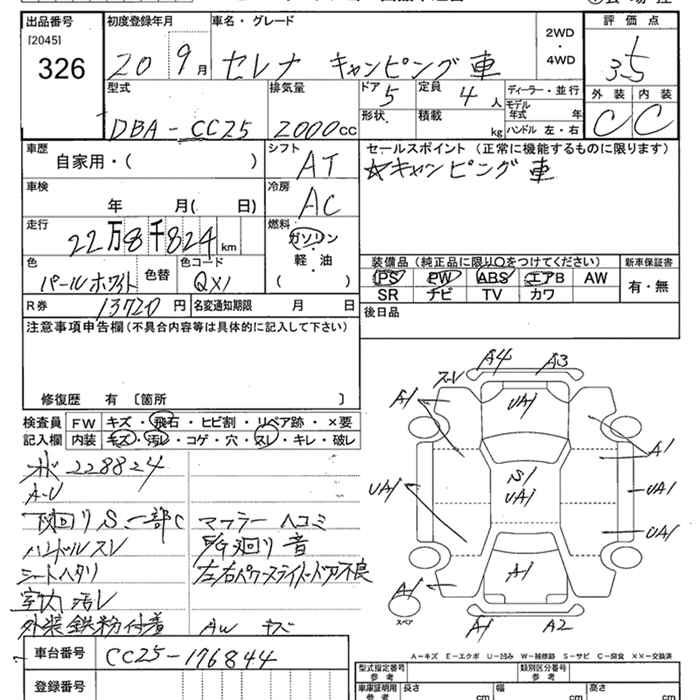 出品番号
[2045]
326
初度登録年月
20 9月
車名・グレード
セレナ キャンピング車
2WD
・
4WD
評価点
3.5
外装 内装
C C
型式
DBA-CC25
排気量
2000cc
ドア
5
定員
4人
形状
積載
kg
ディーラー・並行
モデル年式 年
ハンドル 左・右
車歴
自家用・( )
シフト
AT
セールスポイント (正常に機能するものに限ります)
☆キャンピング車
車検
年 月( 日)
冷房
AC
走行
22万8千824km
燃料
ガソリン
・
軽・油
( )
色
パールホワイト
色替
色コード
QX1
装備品(純正品に限り○をつけてください)
PS PW ABS エアB AW
SR ナビ TV カワ
新車保証書
有・無
R券 13720円
名変通知期限 月 日
後日品
注意事項申告欄(不具合内容等は具体的に記入して下さい)
修復歴 有 〔箇所 〕
検査員
記入欄
FW キズ・飛石・ヒビ割・リペア跡・×要
内装 キズ・汚レ・コゲ・穴・スレ・キレ・破レ
228824
下回りS一部C
マフラーヘコミ
ハンドルスレ
廻り音
シートヘタリ
左右パワースライドドア不良
室内汚レ
外装鉄粉付着
AWキズ
A4 A3
スレ
A1 UA1
A1
S1
UA1
UA1 UA1
UA1
A1
A1
スペア
A1 A2
車台番号
CC25-176844
登録番号
A-キズ E-エクボ U-凹み W-補修跡 S-サビ C-腐食 XX-交換済
型式指定番号
参考
類別区分番号
参考
車庫証明用
参考
長さ cm
幅 cm
高さ cm